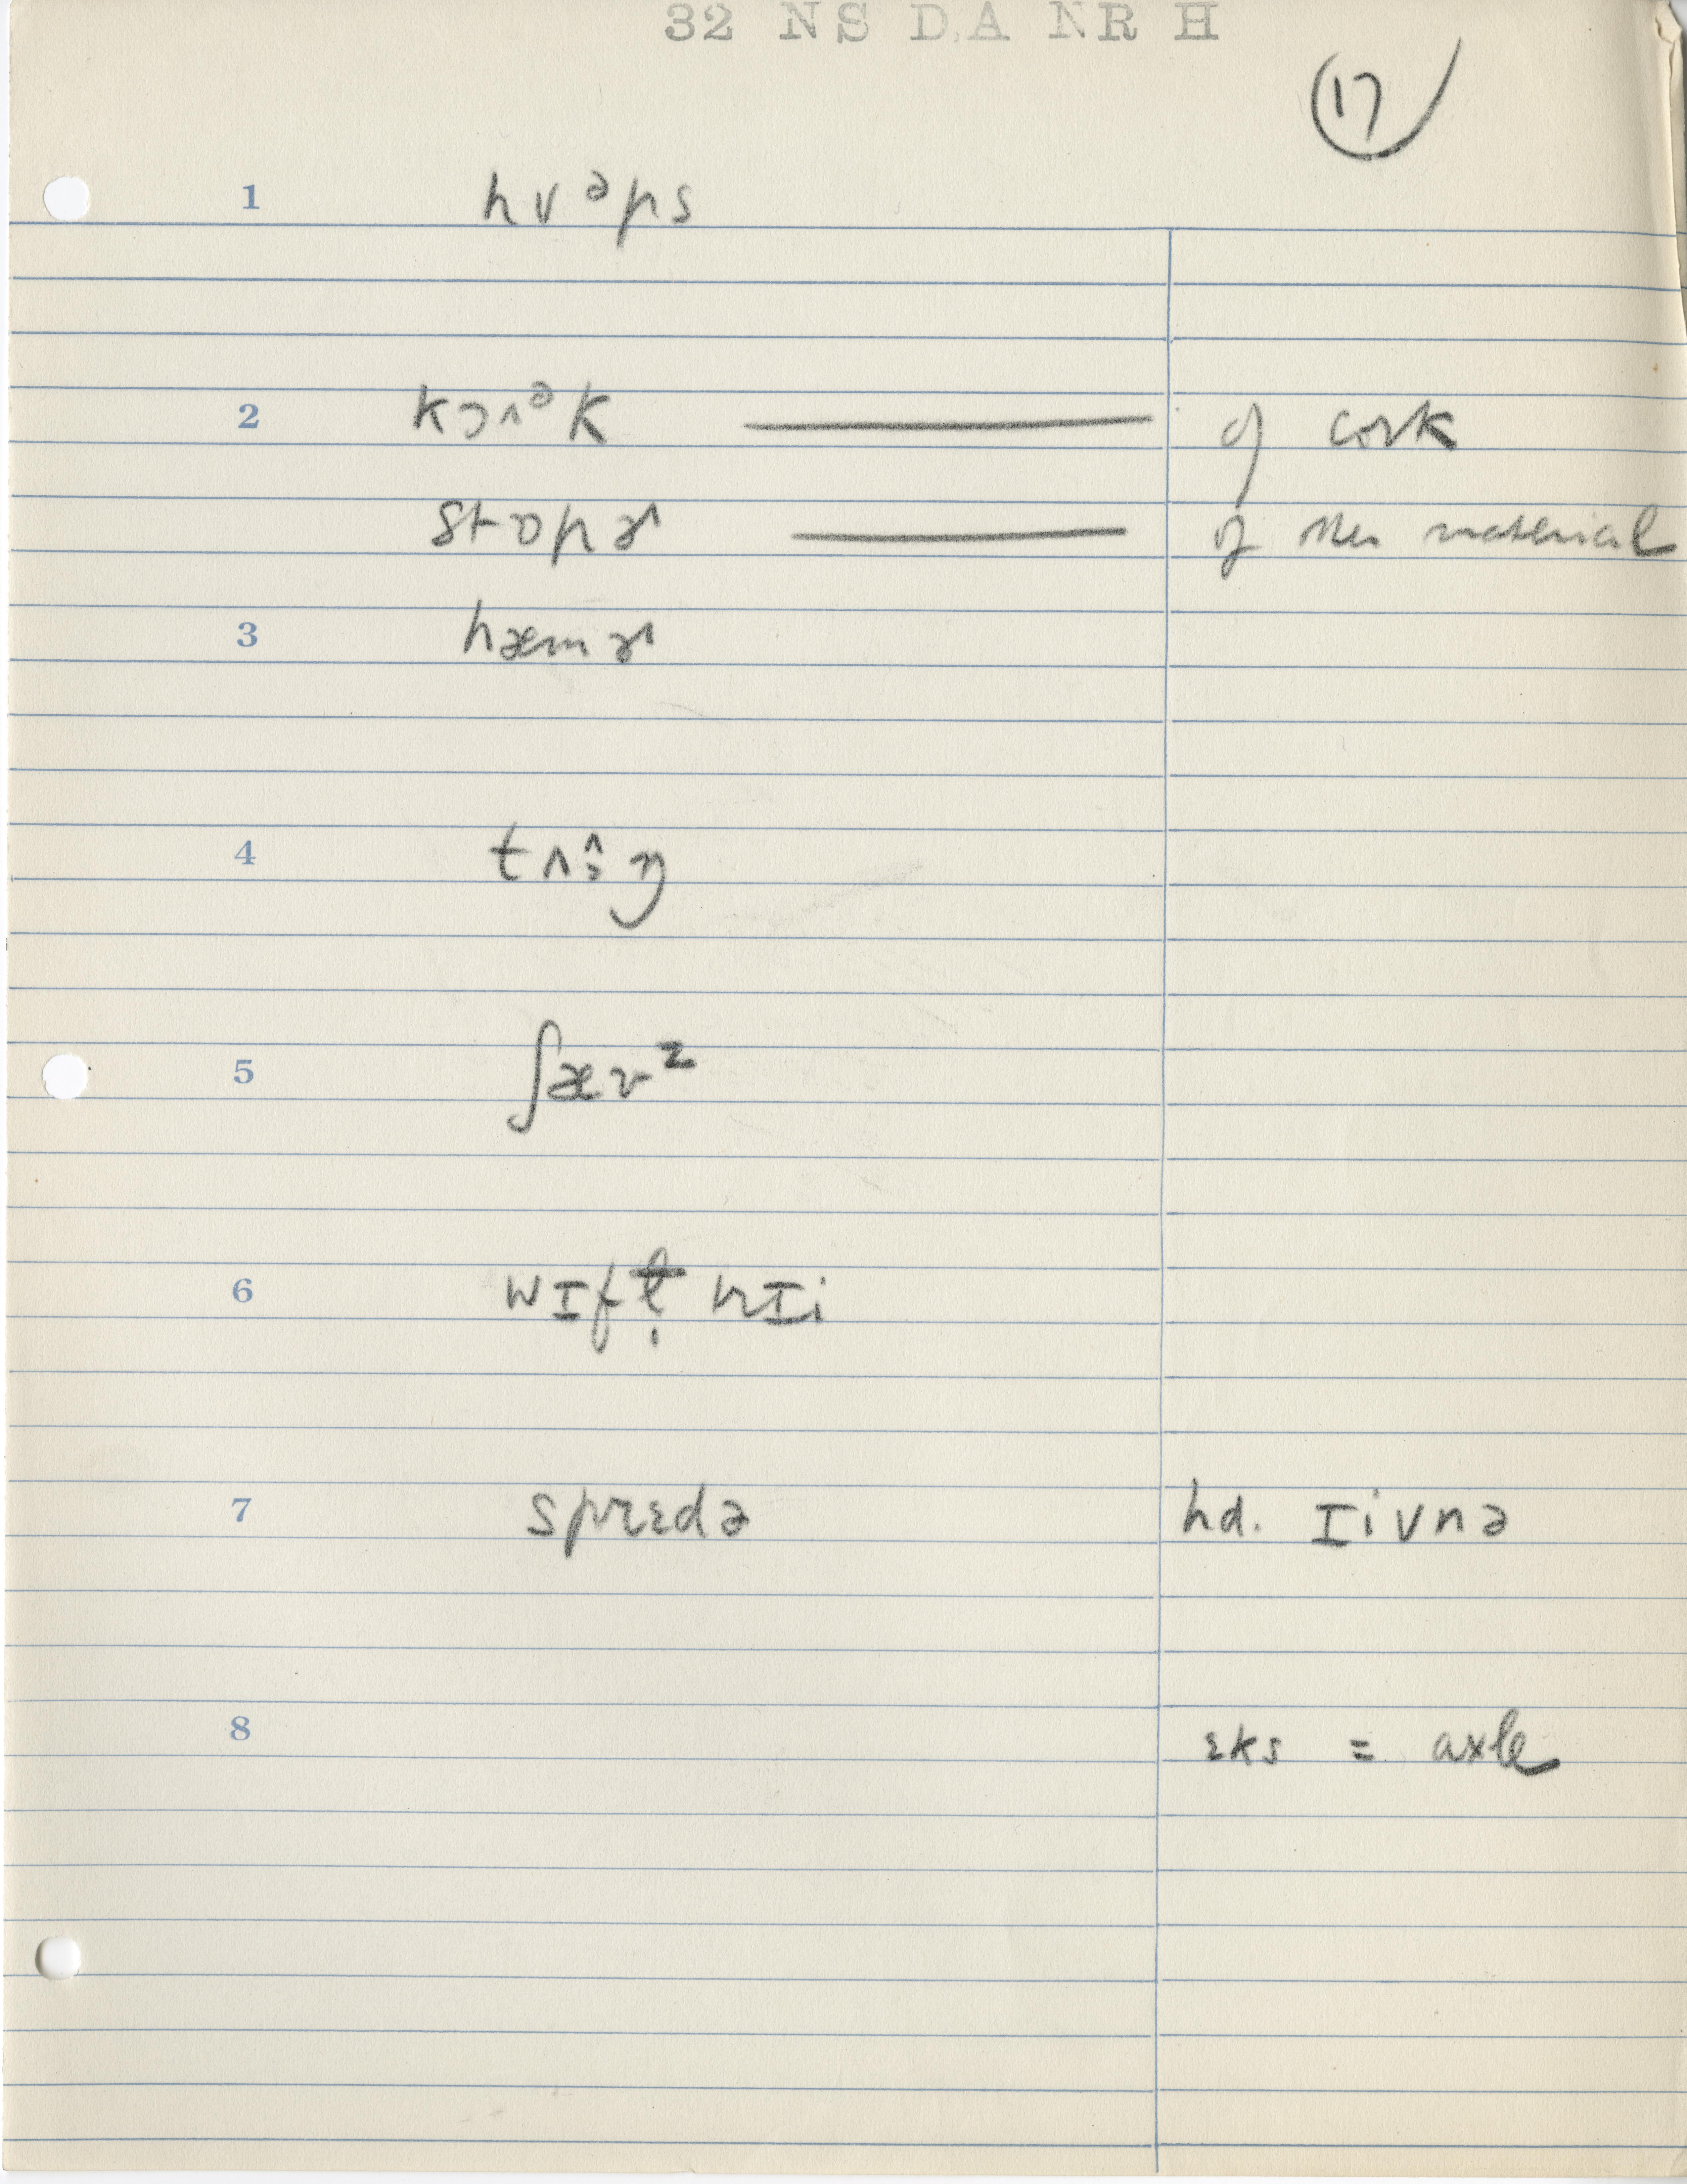 32 NS D,A NR H
17
1 hvᵊps
2 kɔʌᵊk —— of cork
stɒpɚ —— of other material
3 hæmɚ
4 tʌŋ
5 ʃævz
6 wɪfḷ trɪi
7 sprɛdə hd. ɪivnə
8 ɛks = axle